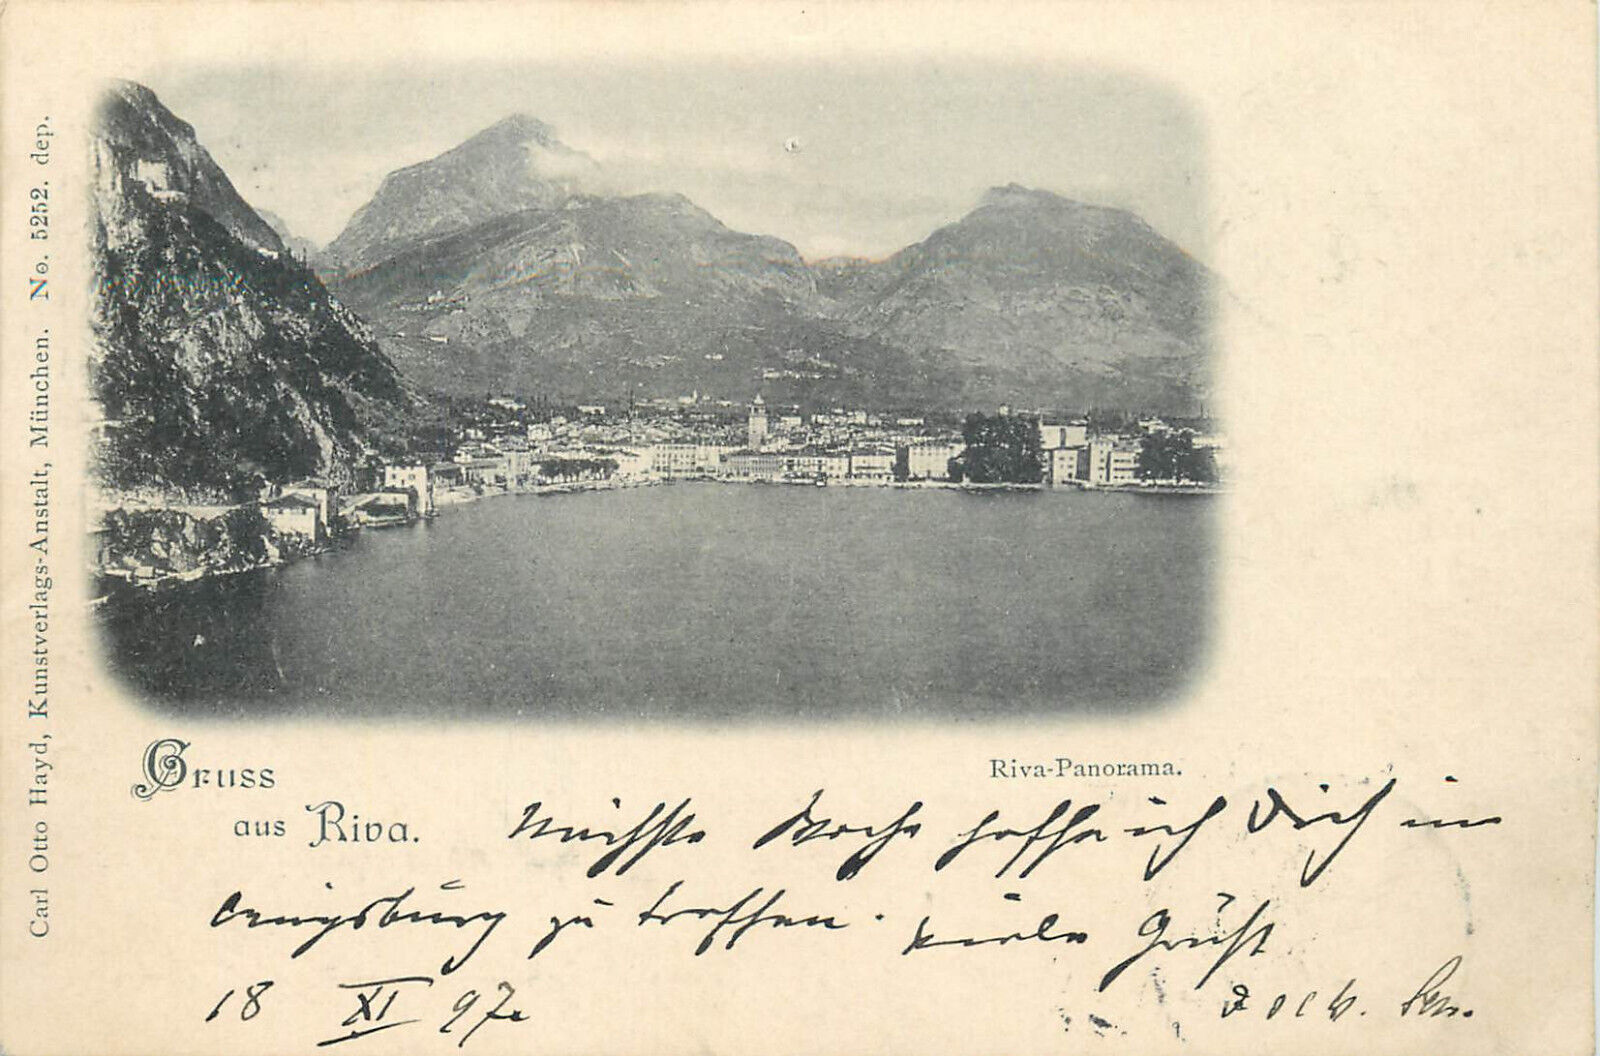 Carl Otto Hayd, Kunstverlags-Anstalt, München. No. 5252. dep.
Gruss
aus Riva.
Riva-Panorama.
Nächste Woche hoffe ich Dich in
Augsburg zu treffen. Viele Grüße
18 XI 97.